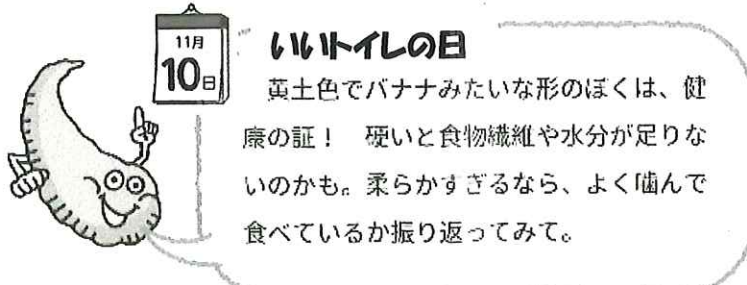 11月
10日
いいトイレの日
黄土色でバナナみたいな形のぼくは、健
康の証！　硬いと食物繊維や水分が足りな
いのかも。柔らかすぎるなら、よく噛んで
食べているか振り返ってみて。